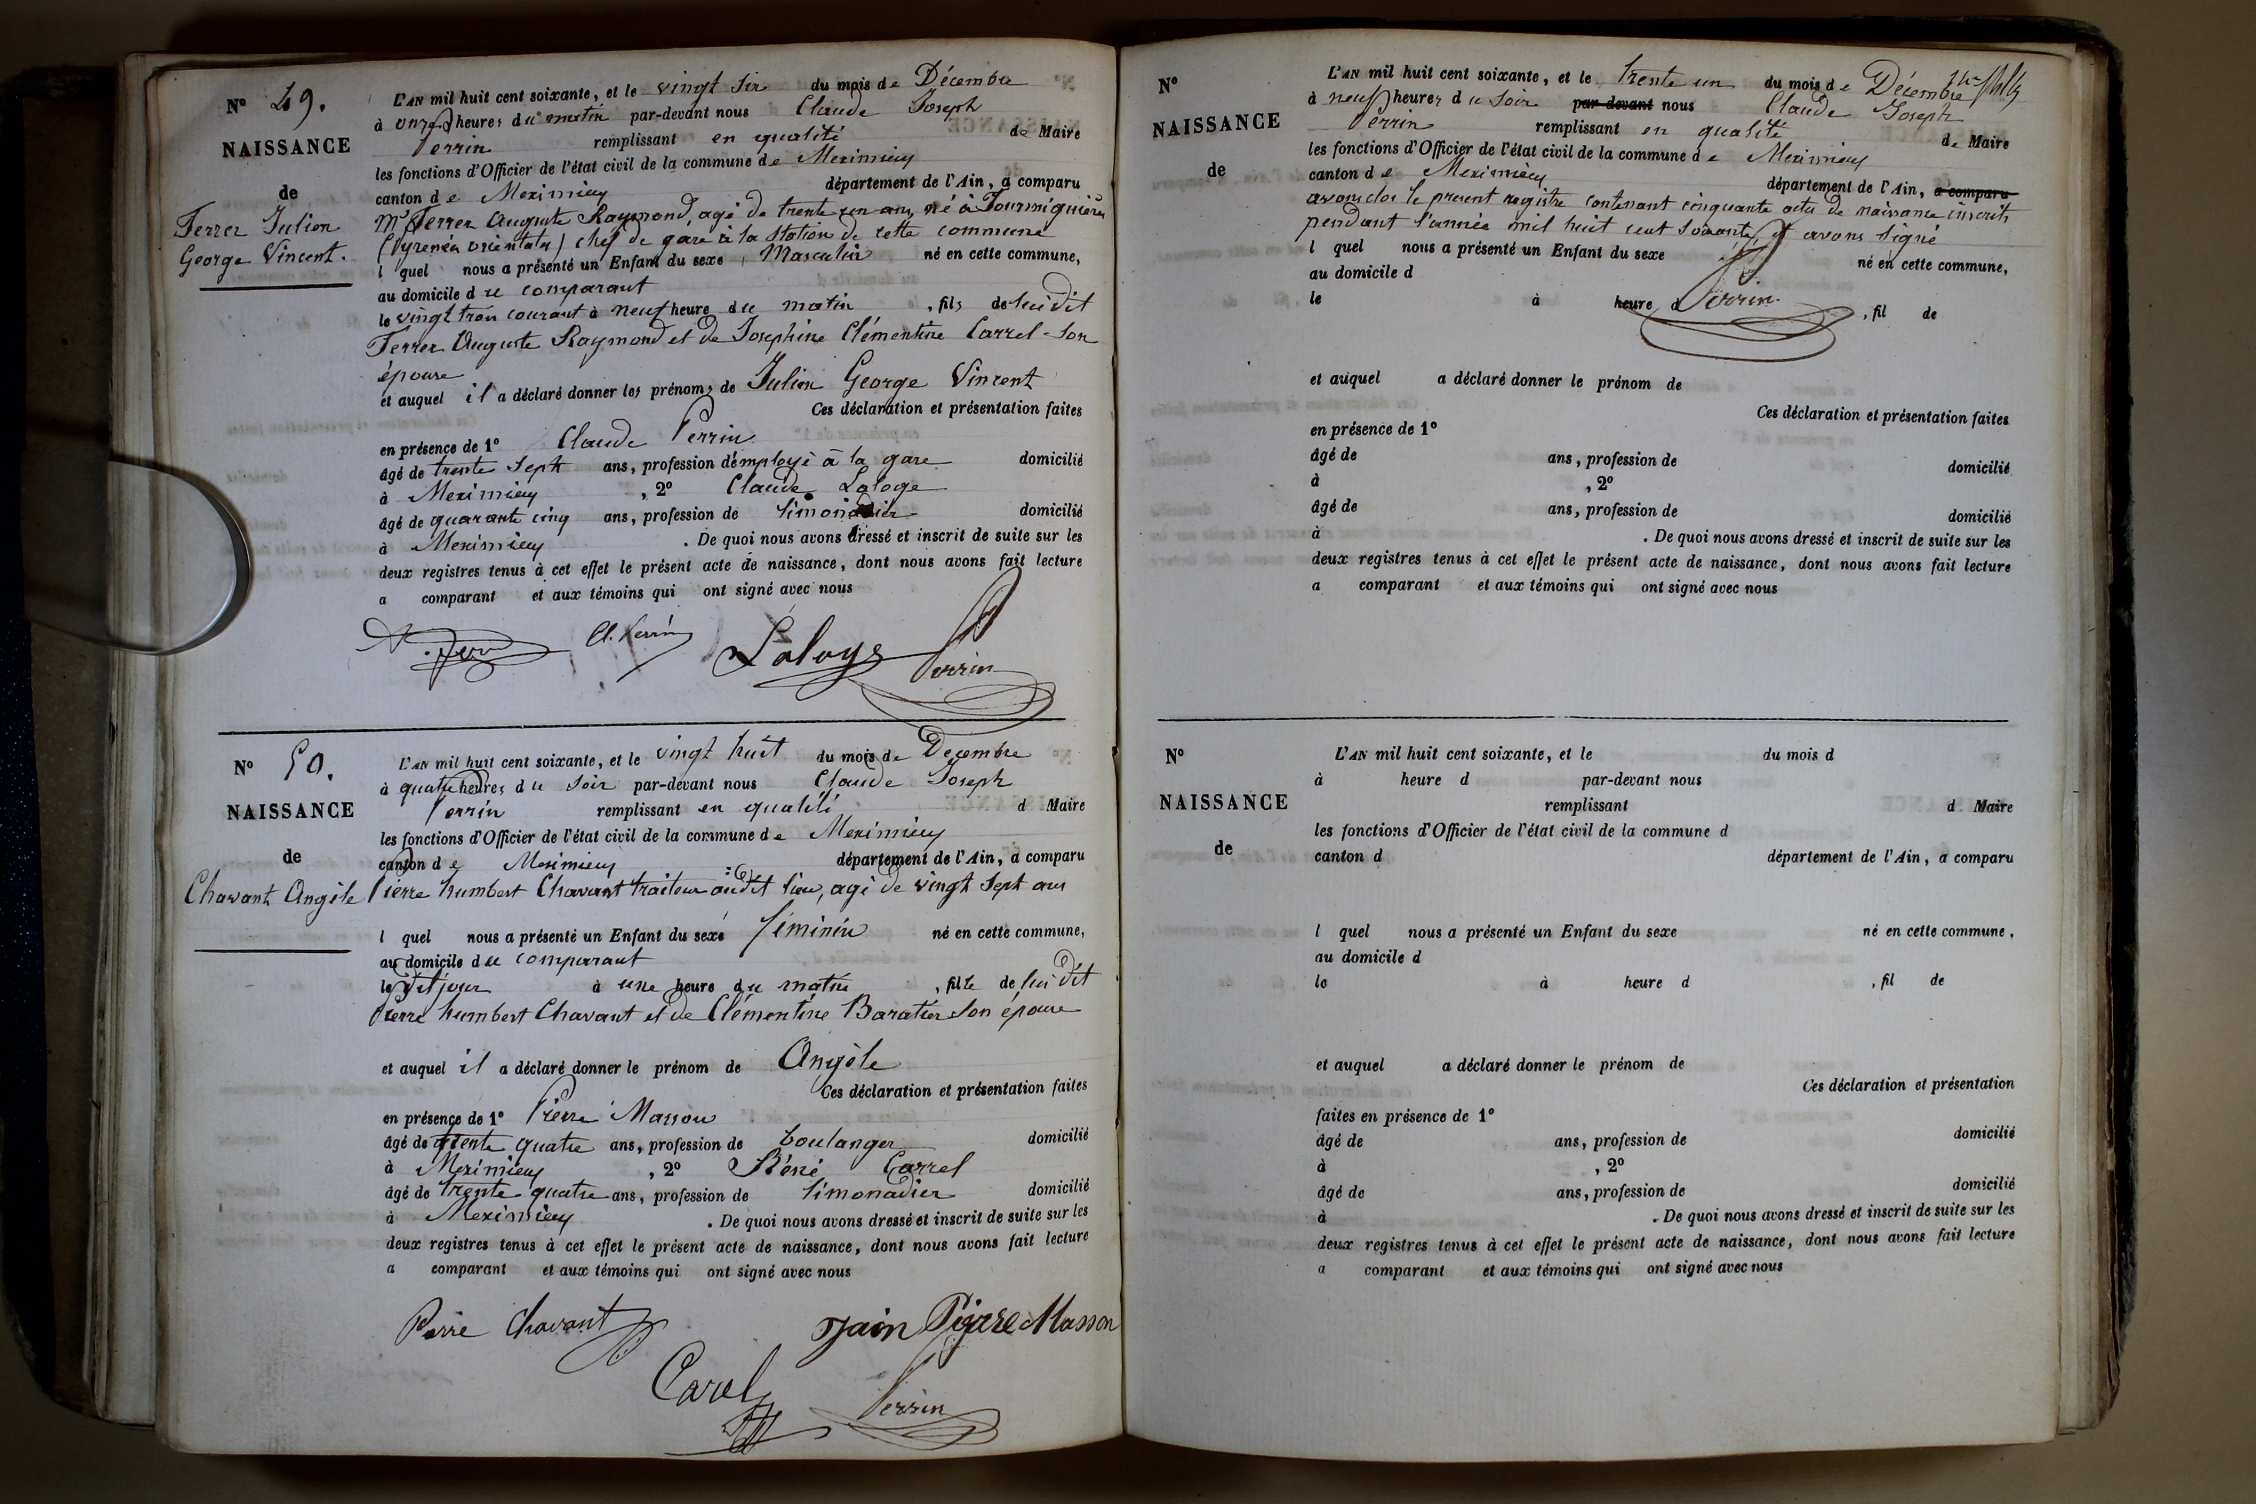 N° 49.
NAISSANCE
de
Ferrer Julien
George Vincent.
L'AN mil huit cent soixante, et le vingt six du mois de Décembre
à onze heures du matin par-devant nous Claude Joseph
Perrin remplissant en qualité de Maire
les fonctions d'Officier de l'état civil de la commune de Meximieux
canton de Meximieux département de l'Ain, a comparu
Mr Ferrer Auguste Raymond, agé de trente un ans, né à Fourmiguières
(Pyrenées orientales) chef de gare à la station de cette commune
l quel nous a présenté un Enfant du sexe Masculin né en cette commune,
au domicile du comparant
le vingt trois courant à neuf heure du matin , fils de lui dit
Ferrer Auguste Raymond et de Josephine Clémentine Carrel son
épouse
et auquel il a déclaré donner les prénoms de Julien George Vincent
Ces déclaration et présentation faites
en présence de 1° Claude Perrin
âgé de trente sept ans, profession d'employé à la gare domicilié
à Meximieux , 2° Claude Laloge
âgé de quarante cinq ans, profession de limonadier domicilié
à Meximieux . De quoi nous avons dressé et inscrit de suite sur les
deux registres tenus à cet effet le présent acte de naissance, dont nous avons fait lecture
a comparant et aux témoins qui ont signé avec nous
Cl. Perrin
Laloge Perrin
N° 50.
NAISSANCE
de
Chavant Angèle
L'AN mil huit cent soixante, et le vingt huit du mois de Decembre
à quatre heures du soir par-devant nous Claude Joseph
Perrin remplissant en qualité d Maire
les fonctions d'Officier de l'état civil de la commune de Meximieux
canton de Meximieux département de l'Ain, a comparu
Pierre humbert Chavant traiteur audit lieu, agé de vingt sept ans
l quel nous a présenté un Enfant du sexe féminin né en cette commune,
au domicile du comparant
le dit jour à une heure du matin , fille de lui dit
Pierre humbert Chavant et de Clémentine Baratier son épouse
et auquel il a déclaré donner le prénom de Angèle
Ces déclaration et présentation faites
en présence de 1° Pierre Masson
âgé de trente quatre ans, profession de boulanger domicilié
à Meximieux , 2° Réné Carrel
âgé de trente quatre ans, profession de limonadier domicilié
à Meximieux . De quoi nous avons dressé et inscrit de suite sur les
deux registres tenus à cet effet le présent acte de naissance, dont nous avons fait lecture
a comparant et aux témoins qui ont signé avec nous
Pierre Chavant Jain Pierre Masson
Carel Perrin
N°
NAISSANCE
de
L'AN mil huit cent soixante, et le trente un du mois de Décembre
à neuf heures du soir par-devant nous Claude Joseph
Perrin remplissant en qualité de Maire
les fonctions d'Officier de l'état civil de la commune de Meximieux
canton de Meximieux département de l'Ain, a comparu
avons clos le present registre contenant cinquante actes de naissance inscrits
pendant l'année mil huit cent soixante, et avons signé
l quel nous a présenté un Enfant du sexe né en cette commune,
au domicile d
le à heure d Perrin , fil de
et auquel a déclaré donner le prénom de
Ces déclaration et présentation faites
en présence de 1°
âgé de ans, profession de domicilié
à , 2°
âgé de ans, profession de domicilié
à . De quoi nous avons dressé et inscrit de suite sur les
deux registres tenus à cet effet le présent acte de naissance, dont nous avons fait lecture
a comparant et aux témoins qui ont signé avec nous
N°
NAISSANCE
de
L'AN mil huit cent soixante, et le du mois d
à heure d par-devant nous
remplissant d Maire
les fonctions d'Officier de l'état civil de la commune d
canton d département de l'Ain, a comparu
l quel nous a présenté un Enfant du sexe né en cette commune,
au domicile d
le à heure d , fil de
et auquel a déclaré donner le prénom de
Ces déclaration et présentation
faites en présence de 1°
âgé de ans, profession de domicilié
à , 2°
âgé de ans, profession de domicilié
à . De quoi nous avons dressé et inscrit de suite sur les
deux registres tenus à cet effet le présent acte de naissance, dont nous avons fait lecture
a comparant et aux témoins qui ont signé avec nous